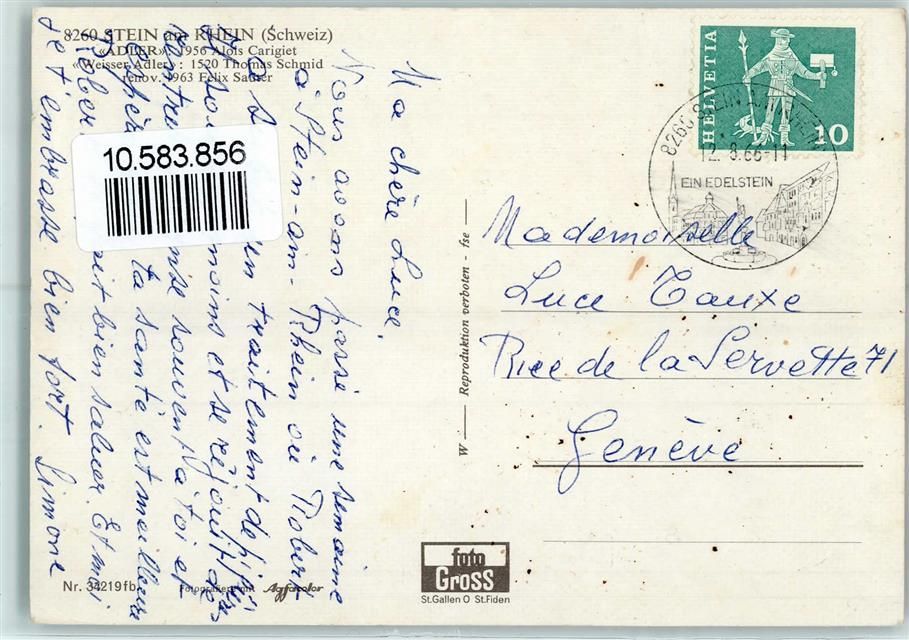 8260 STEIN am RHEIN (Schweiz)
«ADLER» 1956 Alois Carigiet
Weisser Adler : 1520 Thomas Schmid
renov. 1963 Felix Sauter
10.583.856
Ma chère Luce,
Nous avons passé une semaine
à Stein-am-Rhein où Tibert
en traitement
moins et se réjouit de
souvent à toi et
ta santé est meilleure
bien saluer. Et moi
je t'embrasse bien fort. Simone
Nr. 34219fb
Fotografiert mit Agfacolor
W — Reproduktion verboten - fse —
foto
GROSS
St.Gallen O St.Fiden
HELVETIA
10
8260 STEIN AM RHEIN
12.8.66-11
EIN EDELSTEIN
Mademoiselle
Luce Tauxe
Rue de la Servette 71
Genève